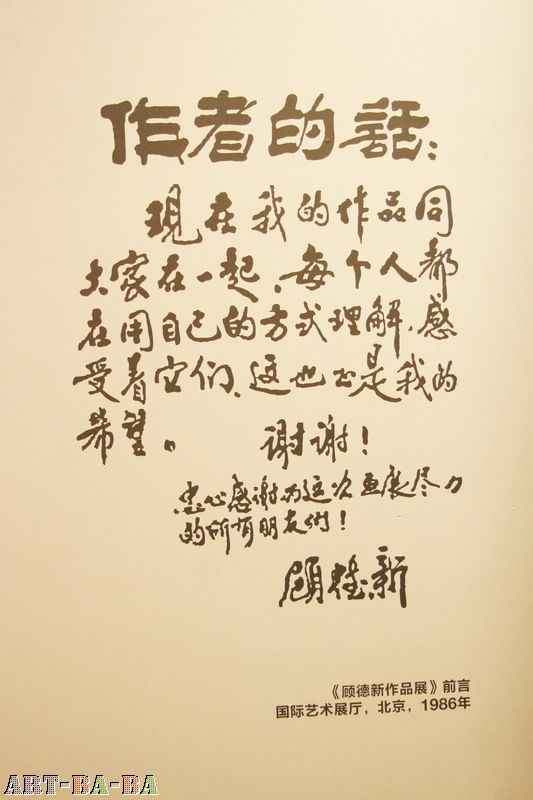 作者的話：
現在我的作品同
大家在一起、每个人都
在用自己的方式理解、感
受着它们、这也正是我的
希望。 谢谢！
忠心感谢为这次画展尽力
的所有朋友们！
顧德新
《顾德新作品展》前言
国际艺术展厅，北京，1986年
ART-BA-BA